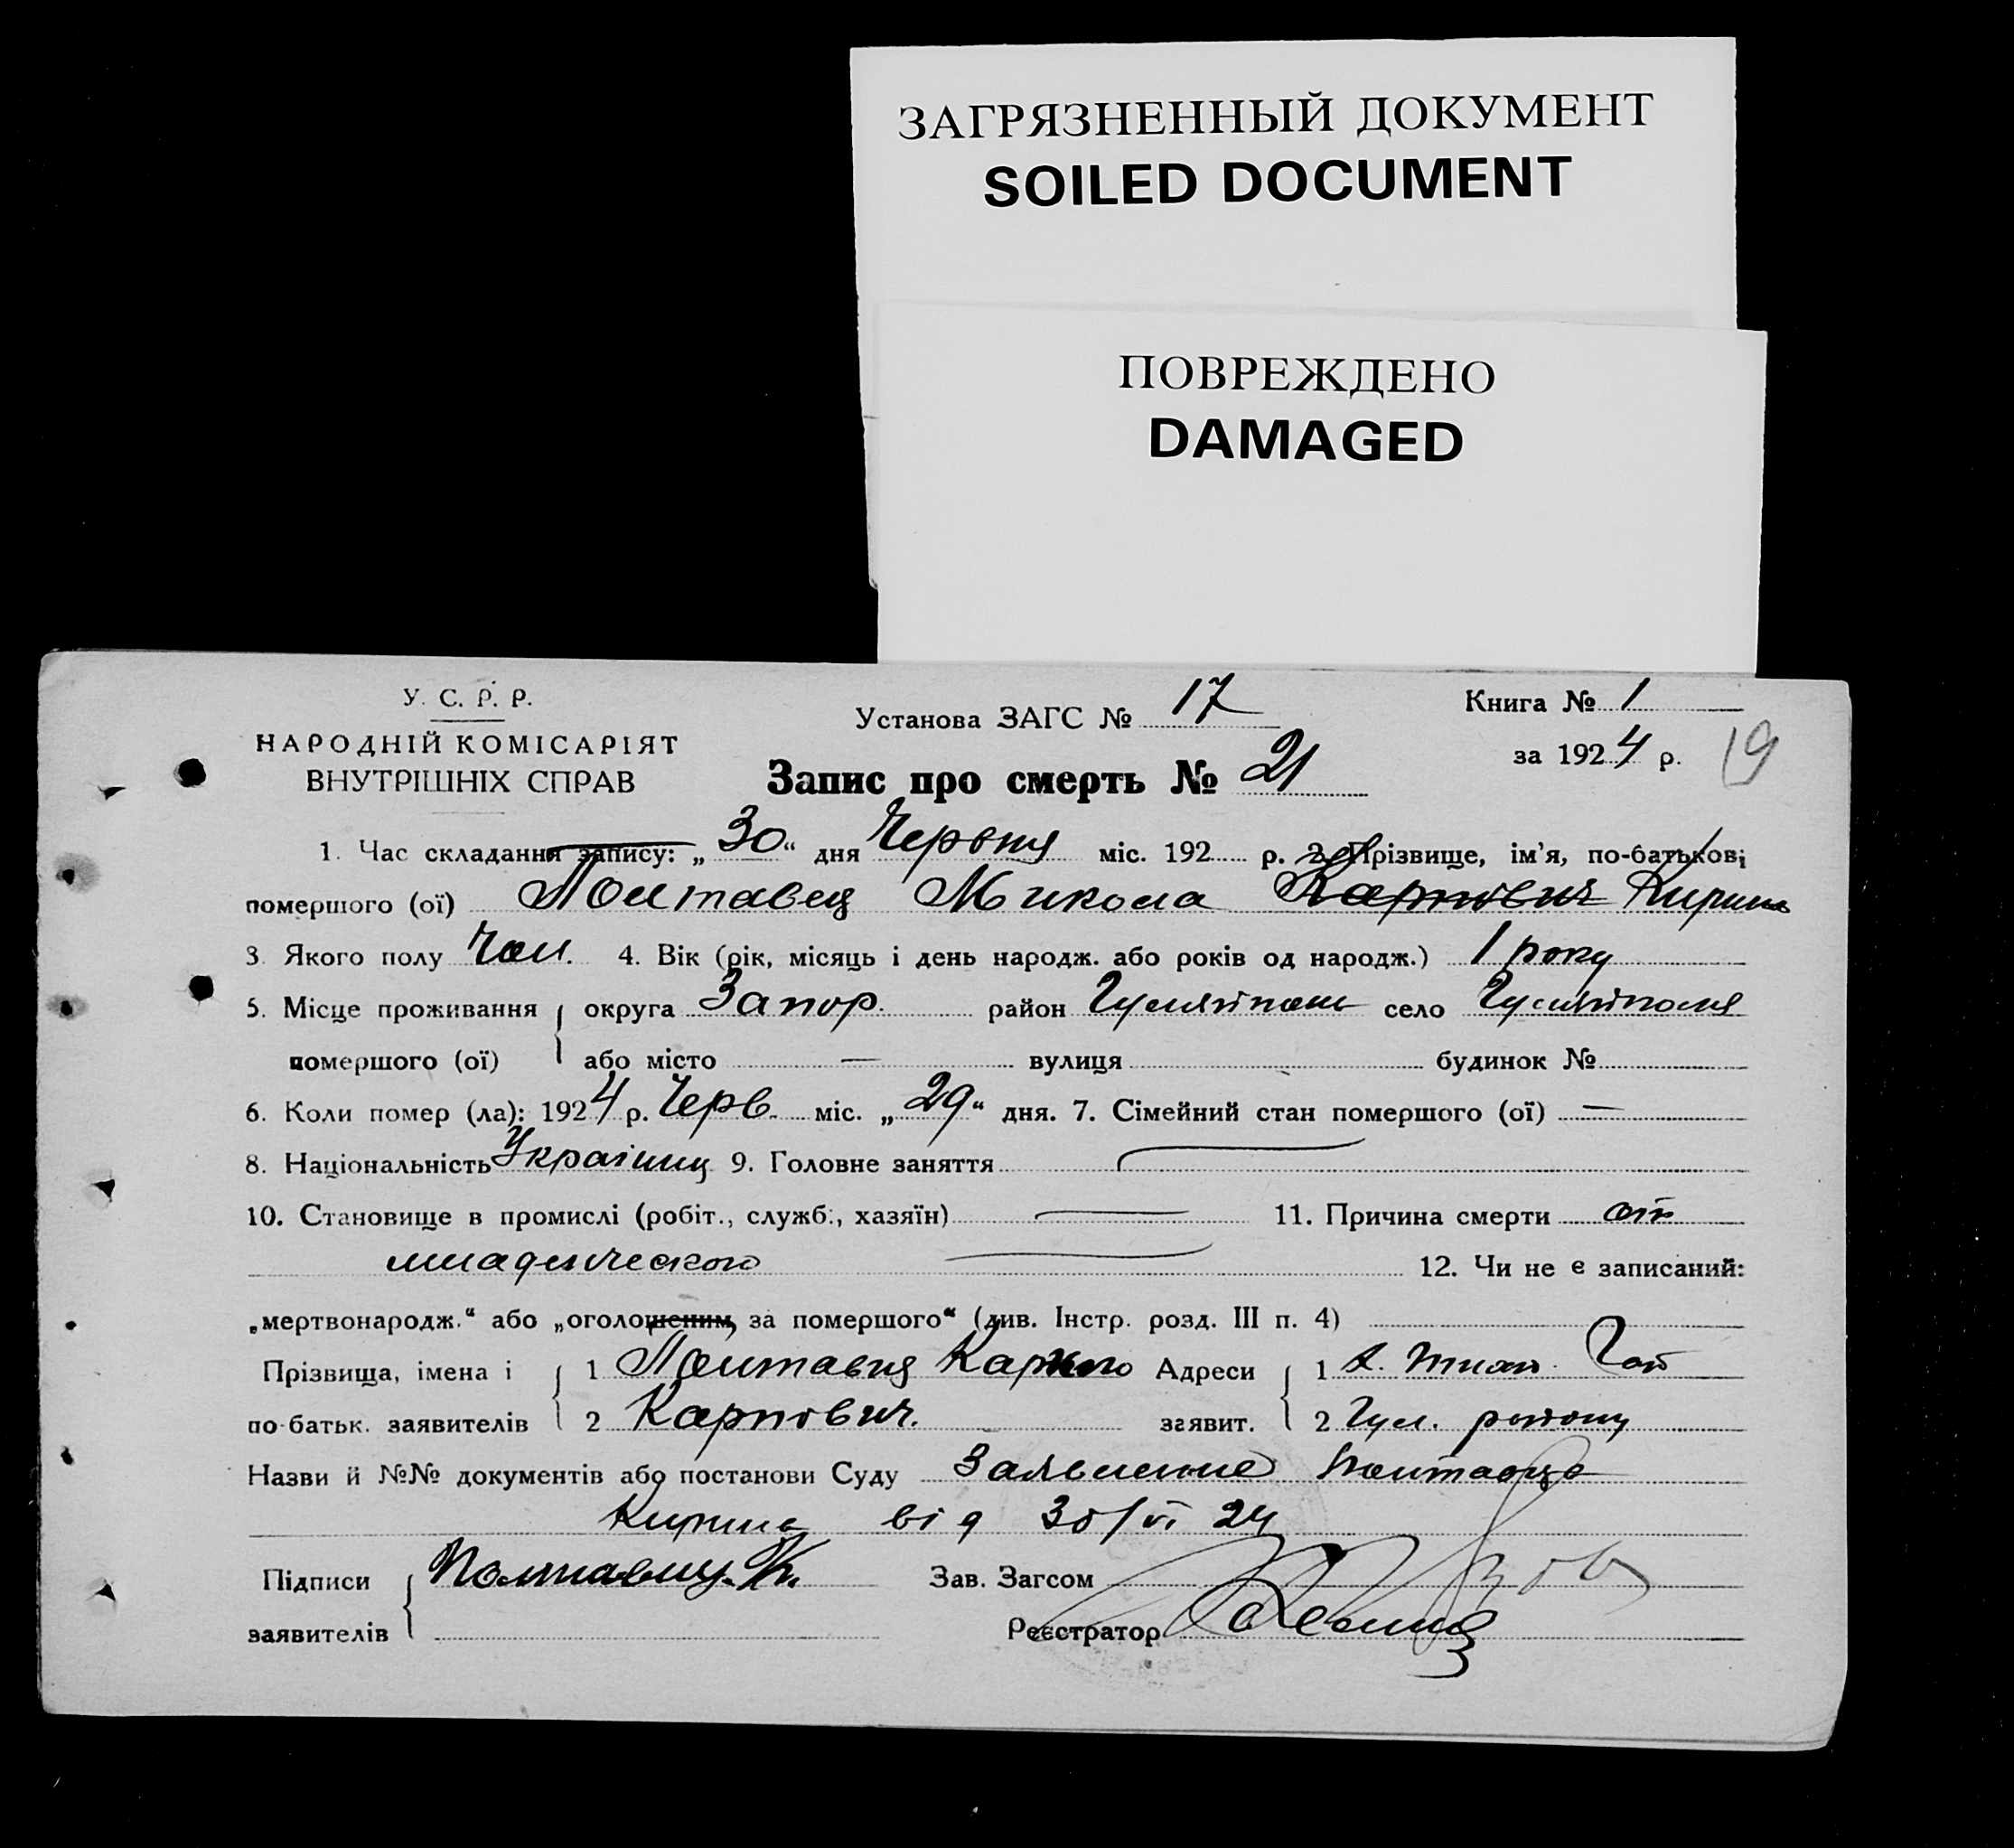 ЗАГРЯЗНЕННЫЙ ДОКУМЕНТ
SOILED DOCUMENT
ПОВРЕЖДЕНО
DAMAGED
У. С. Р. Р.
НАРОДНІЙ КОМІСАРІЯТ
ВНУТРІШНІХ СПРАВ
Установа ЗАГС № 17
Книга № 1
за 1924 р.
19
Запис про смерть № 21
1. Час складання запису: „30“ дня Червня міс. 192 р. 2. Прізвище, ім'я, по-батькові
помершого (ої) Полтавец Микола Карпович
3. Якого полу Чол. 4. Вік (рік, місяць і день народж. або років од народж.) 1 року
5. Місце проживання округа Запор. район село
помершого (ої) або місто — вулиця будинок №
6. Коли помер (ла): 1924 р. Черв. міс. „29“ дня. 7. Сімейний стан помершого (ої) —
8. Національність 9. Головне заняття
10. Становище в промислі (робіт., служб., хазяїн) — 11. Причина смерти от
младенческого — 12. Чи не є записаний:
„мертвонародж.“ або „оголошеним, за помершого“ (див. Інстр. розд. III п. 4)
Прізвища, імена і 1 Адреси 1
по-батьк. заявителів 2 Карпович. заявит. 2 Гул. району
Назви й №№ документів або постанови Суду Заявление Полтавця
від 30/VI 24
Підписи Зав. Загсом
заявителів Реєстратор